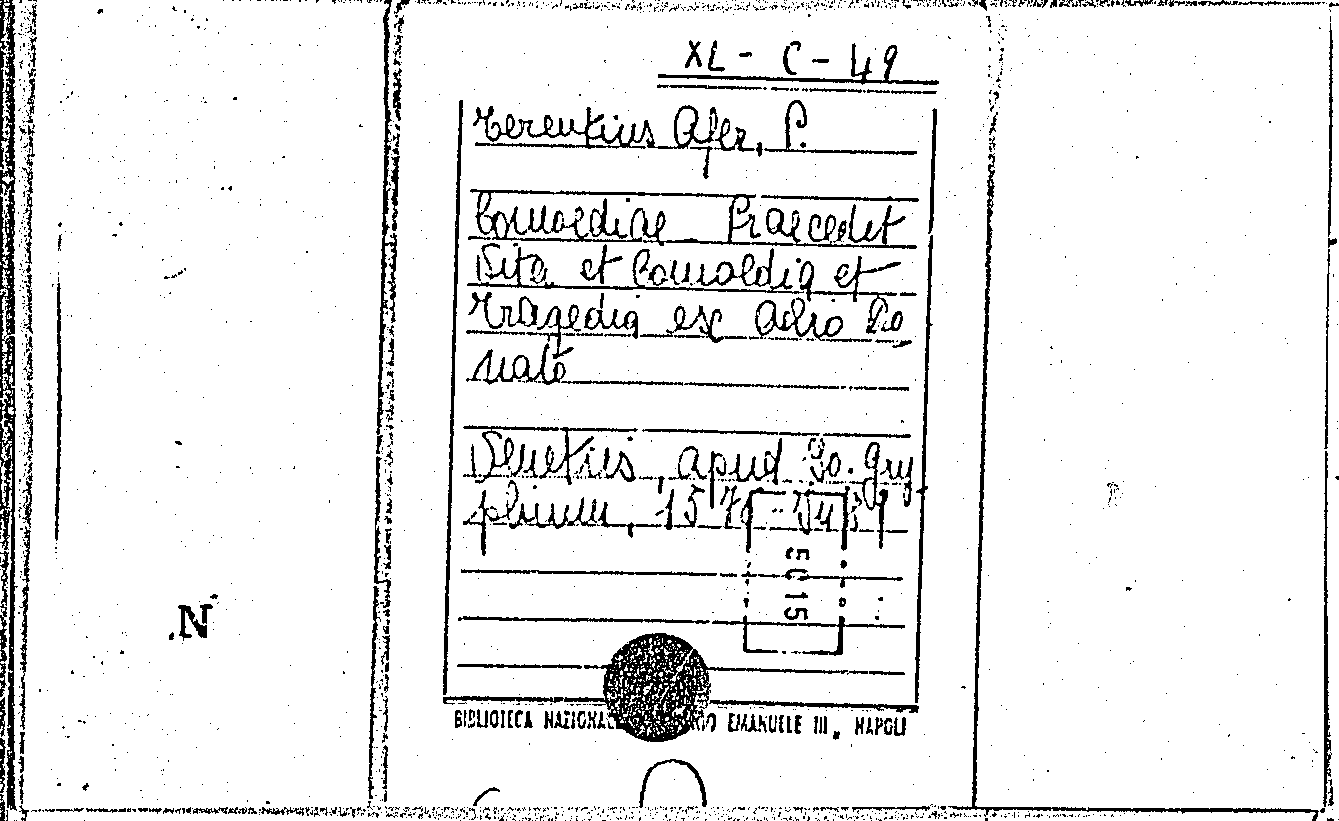 XL - C - 49
Terentius Afer, P.
Comoediae Praecedit
Vita et Comoedia et
Tragedia ex Aelio Do
nato
Venetiis, apud Io. Gry
phium, 15
5C 15
BIBLIOTECA NAZIONALE EMANUELE III, NAPOLI
N